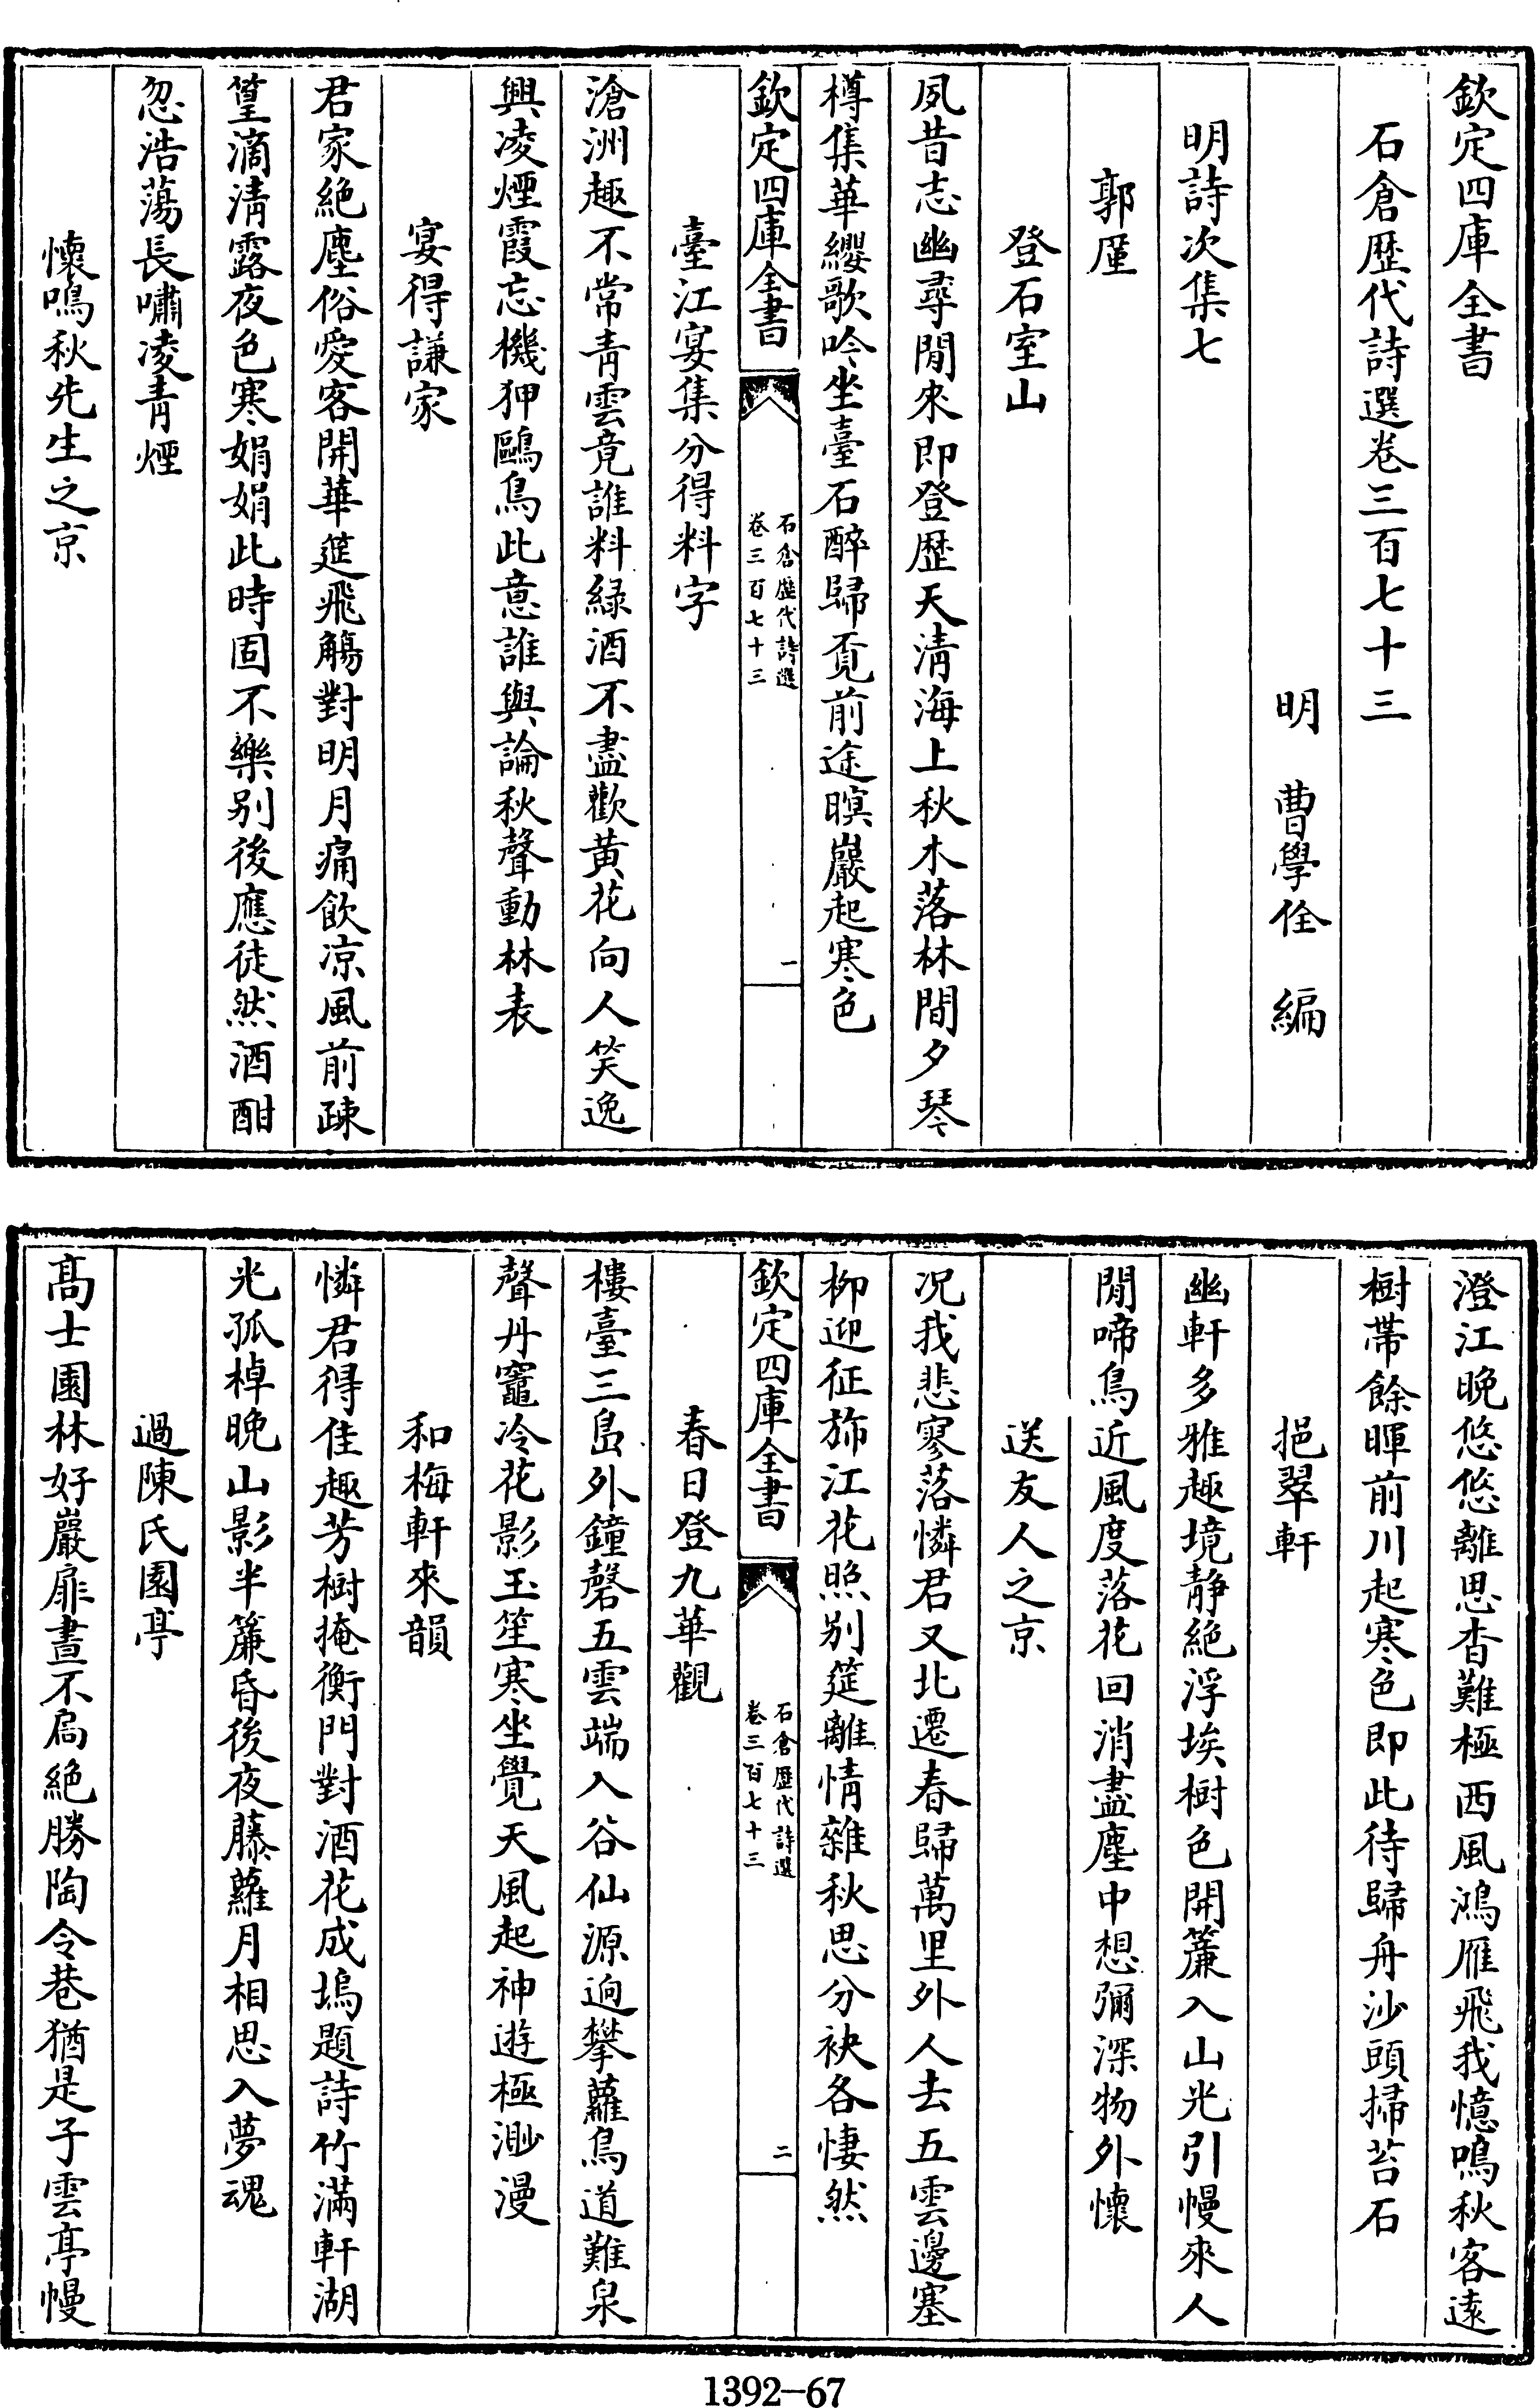 欽定四庫全書
石倉歷代詩選卷三百七十三
明 曹學佺 編
明詩次集七
郭廑
登石室山
夙昔志幽尋閒來即登歴天清海上秋木落林間夕琴
樽集華纓歌吟坐臺石醉歸覔前途暝巖起寒色
欽定四庫全書
石倉歴代詩選
卷三百七十三
一
臺江宴集分得料字
滄洲趣不常青雲竟誰料緑酒不盡歡黄花向人笑逸
興凌煙霞忘機狎鷗鳥此意誰與論秋聲動林表
宴得謙家
君家絶塵俗愛客開華筵飛觴對明月痛飲凉風前疎
篁滴清露夜色寒娟娟此時固不樂别後應徒然酒酣
忽浩蕩長嘯凌青煙
懷鳴秋先生之京
澄江晚悠悠離思杳難極西風鴻雁飛我憶鳴秋客遠
樹帶餘暉前川起寒色即此待歸舟沙頭掃苔石
挹翠軒
幽軒多雅趣境静絶浮埃樹色開簾入山光引幔來人
閒啼鳥近風度落花回消盡塵中想彌深物外懷
送友人之京
况我悲寥落憐君又北遷春歸萬里外人去五雲邊塞
柳迎征斾江花照别筵離情雜秋思分袂各悽然
欽定四庫全書
石倉歴代詩選
卷三百七十三
二
春日登九華觀
樓臺三島外鐘磬五雲端入谷仙源逈攀蘿鳥道難泉
聲丹竈冷花影玉笙寒坐覺天風起神遊極渺漫
和梅軒來韻
憐君得佳趣芳樹掩衡門對酒花成塢題詩竹滿軒湖
光孤棹晚山影半簾昏後夜藤蘿月相思入夢魂
過陳氏園亭
高士園林好巖扉晝不扃絶勝陶令巷猶是子雲亭幔
1392-67